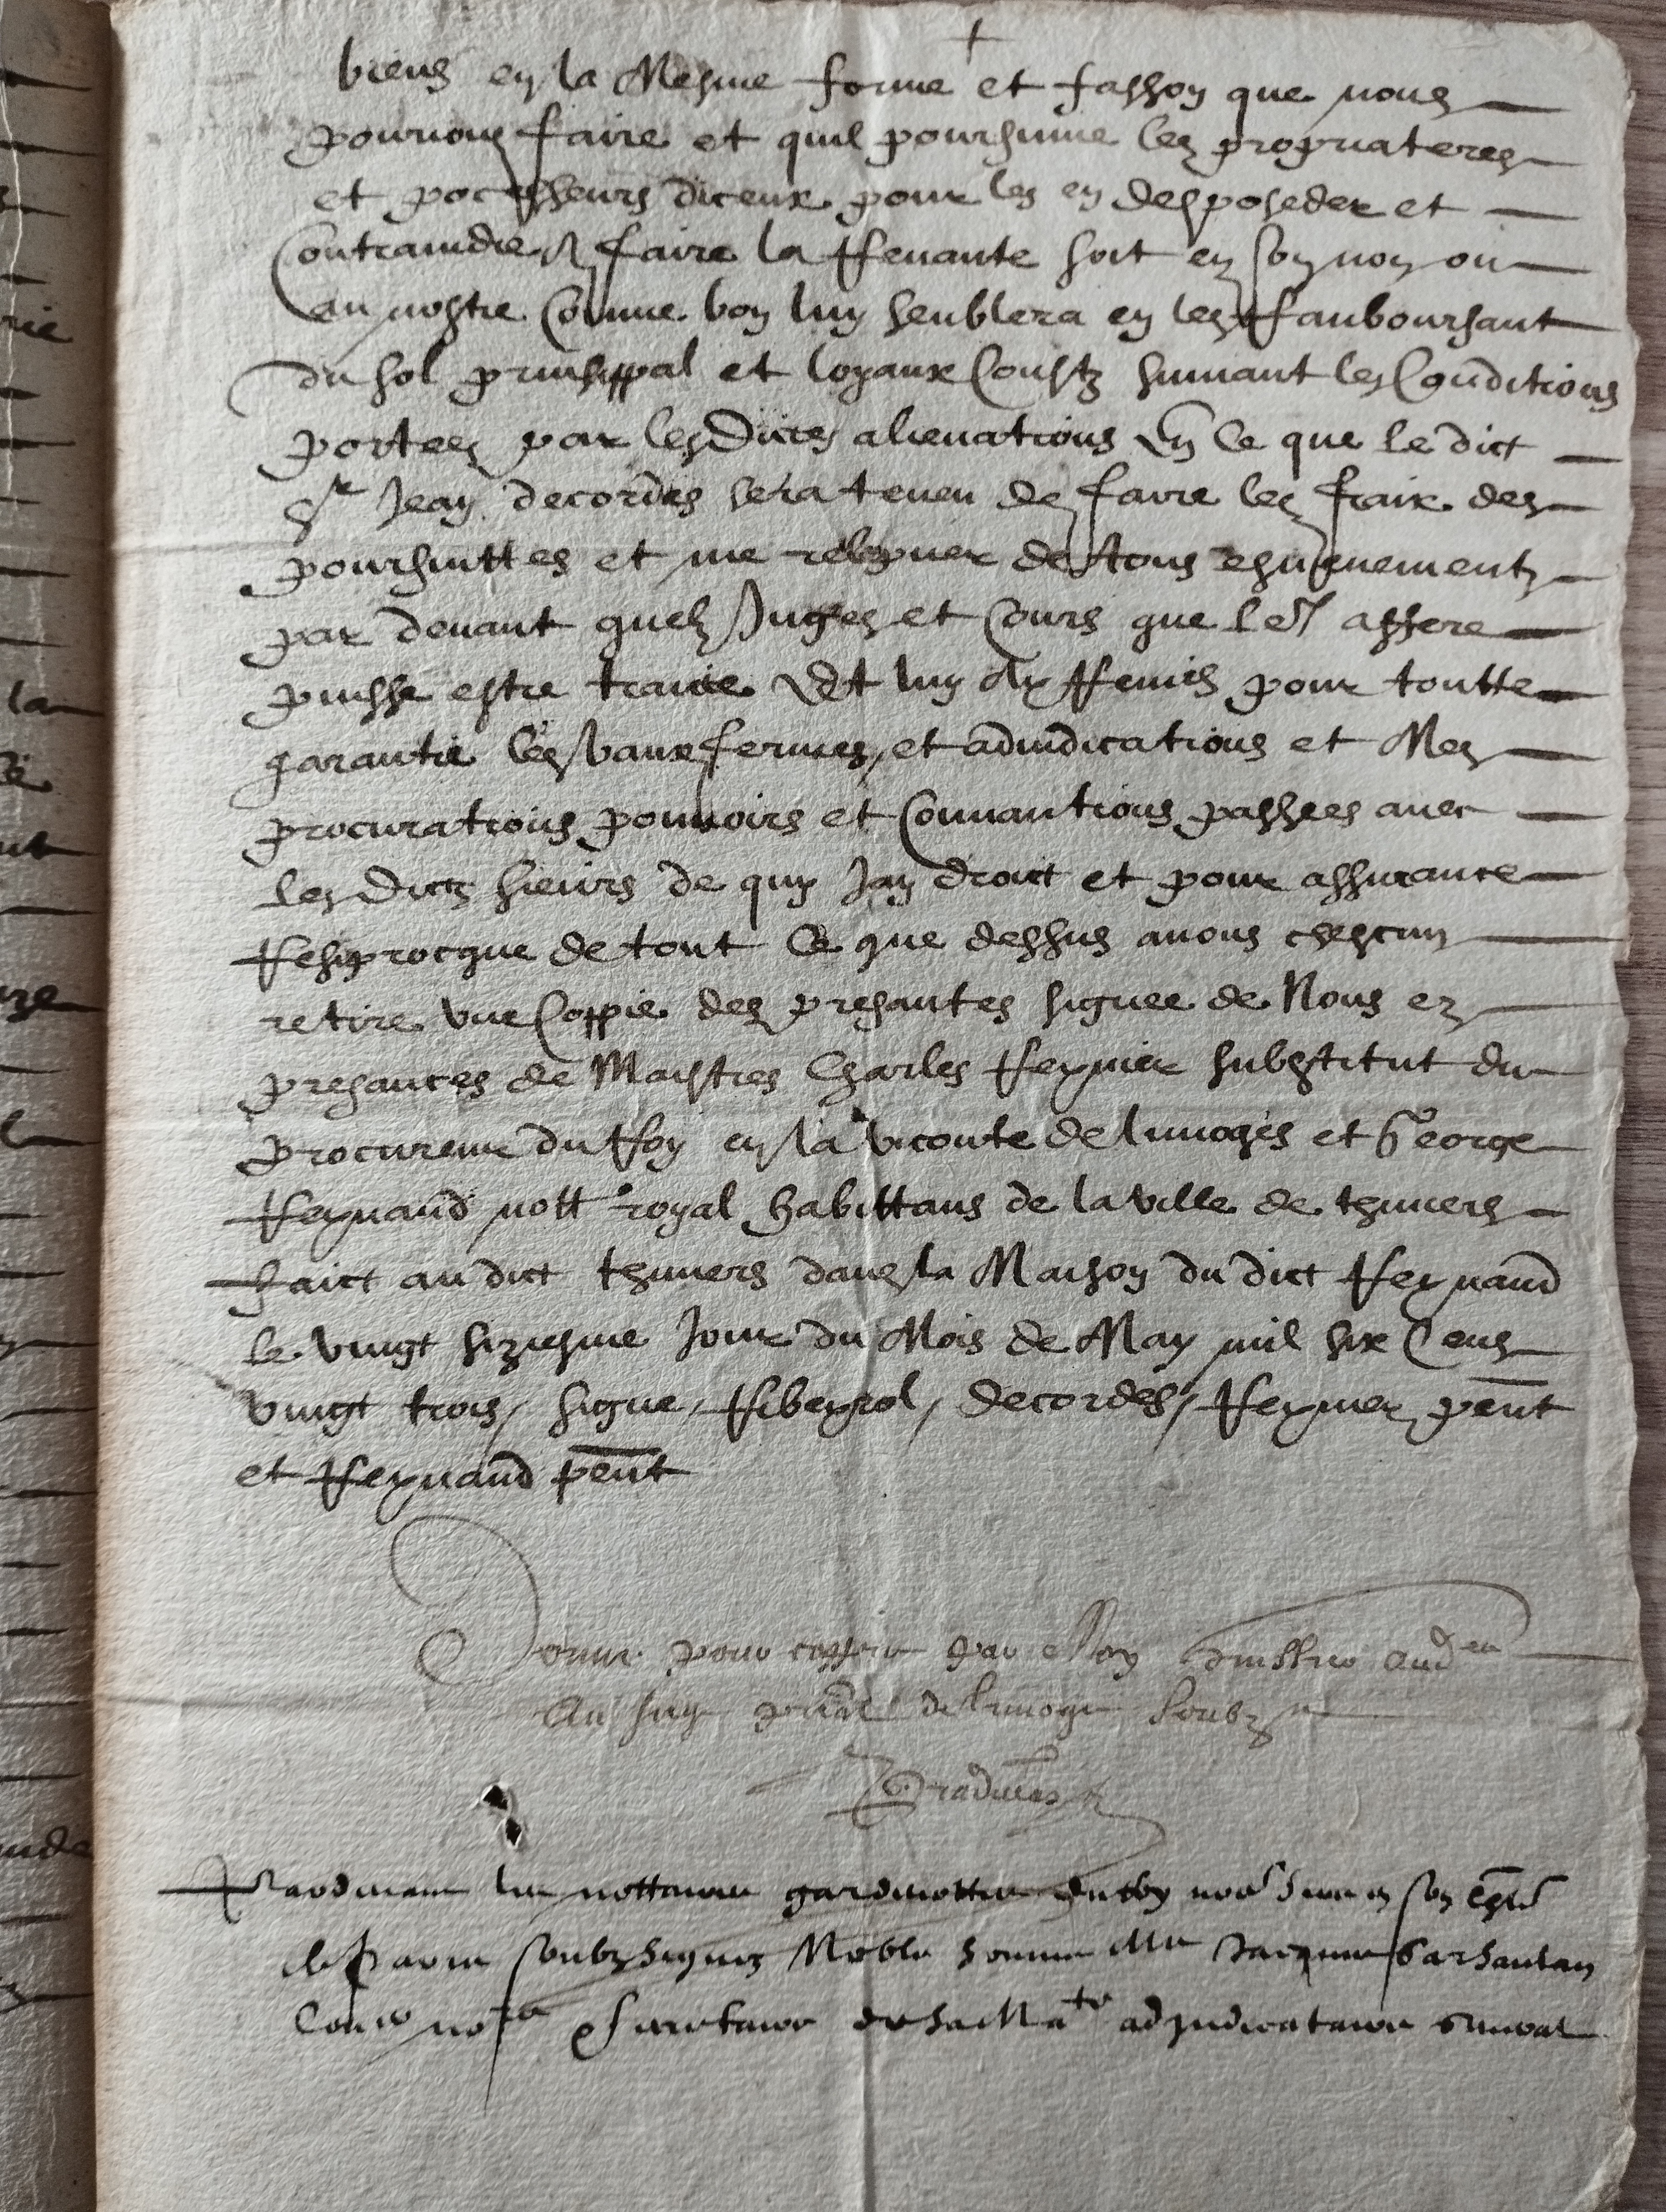 biens en la Mesme forme et fasson que nous
pourions faire et quil poursuiue les propriateres
et pocesseurs diceux pour les en desposeder et
Contraindre a faire la Revante soit en son non ou
au nostre Comme bon luy semblera en les Ramboursant
du sol prinsippal et loyaux Coustz suiuant les Conditions
portees par lesdictes alienations En Ce que le dict
Sr Jean decordes sera teneu de faire les fraix des
poursuittes et me relepuer de tous esuenementz
par deuant quelz Juges et Cours que led affere
puisse estre traicte Et luy ay Remis pour toutte
garantie les baux fermes, et adiudications et Mes
procurations pouuoirs et Conuantions passees auec
les dictz sieurs de quy Jay droict et pour assurance
Resiprocque de tout Ce que dessus auons chescun
retire vne Coppie des presantes signee de Nous ez
presances de Maistres Charles Reynier substitut du
procureur du Roy en la viconte de limoges et George
Reynaud nott royal habittans de la ville de thiuiers
faict au dict thiuiers dans la Maison du dict Reynaud
le vingt siziesme Jour du Mois de May mil six Cens
vingt trois, signe, Ribeyrol, decordes, Reynier pent
et Reynaud pent
pour coppie par Moy
Au de limoges Soubzne
Pardeuant les nottaires gardenottes du Roy nore Sire en son
de Paris soubzsignez Noble homme Me Jacques
Conser nore Secretaire de sa Mate adjudicataire